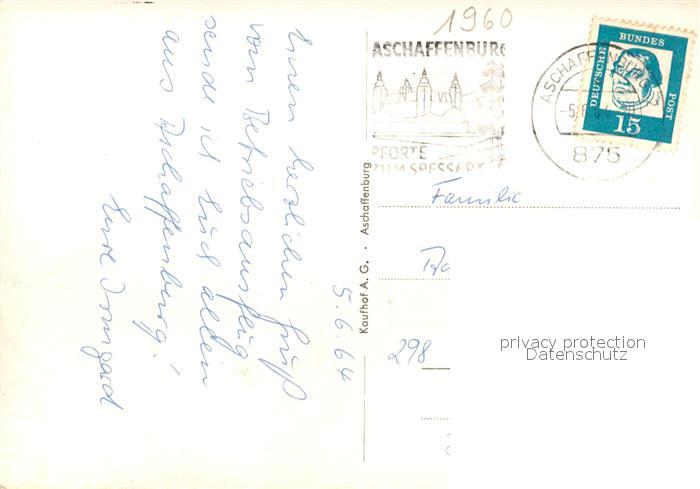 1960
Einen herzlichen Gruß
vom Betriebsausflug
sende ich Euch allen
aus Aschaffenburg!
Eure Irmgard
5.6.64
Kaufhof A. G. · Aschaffenburg
ASCHAFFENBURG
PFORTE
ZUM SPESSART
ASCHAFFENBURG
875
DEUTSCHE BUNDES POST
15
Familie
298
privacy protection
Datenschutz